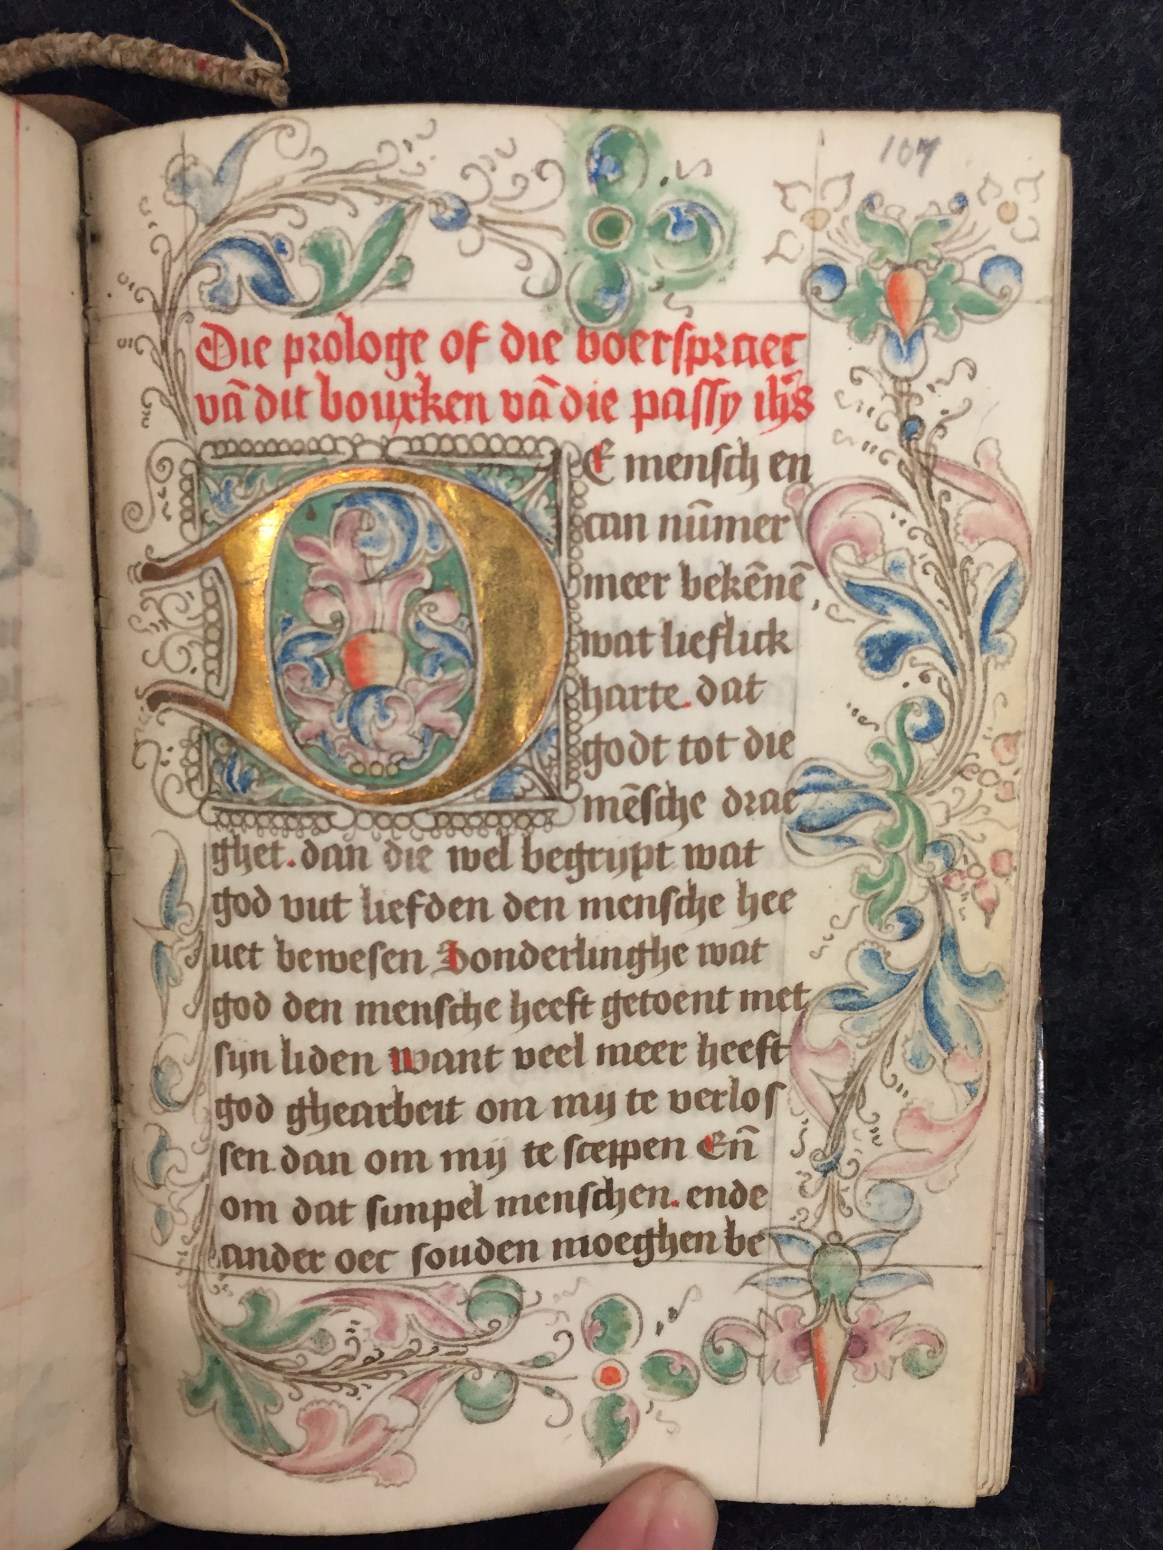 107
Die prologe of die voerspraec
vā dit bouxken vā die passy ih̄s
DE mensch en
can nūmer
meer bekēnē
wat lieflick
harte. dat
godt tot die
mēsche drae
ghet. dan die wel begrijpt wat
god vut liefden den mensche hee
uet bewesen Sonderlinghe wat
god den mensche heeft getoent met
sijn liden want veel meer heeft
god ghearbeit om mij te verlos
sen dan om mij te sceppen En̄
om dat simpel menschen. ende
ander oec souden moeghen be